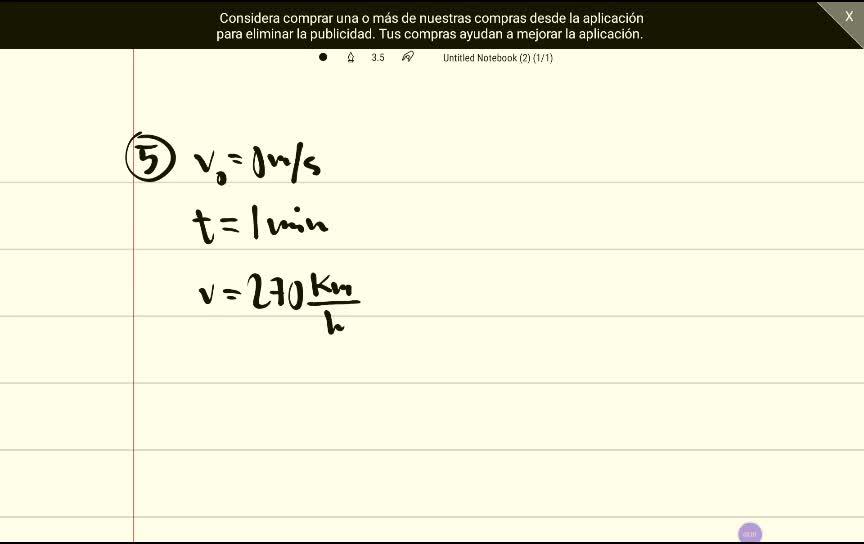 Considera comprar una o más de nuestras compras desde la aplicación
para eliminar la publicidad. Tus compras ayudan a mejorar la aplicación.
X
3.5 Untitled Notebook (2) (1/1)
5 v₀ = 0 m/s
t = 1 min
v = 270 Km/h